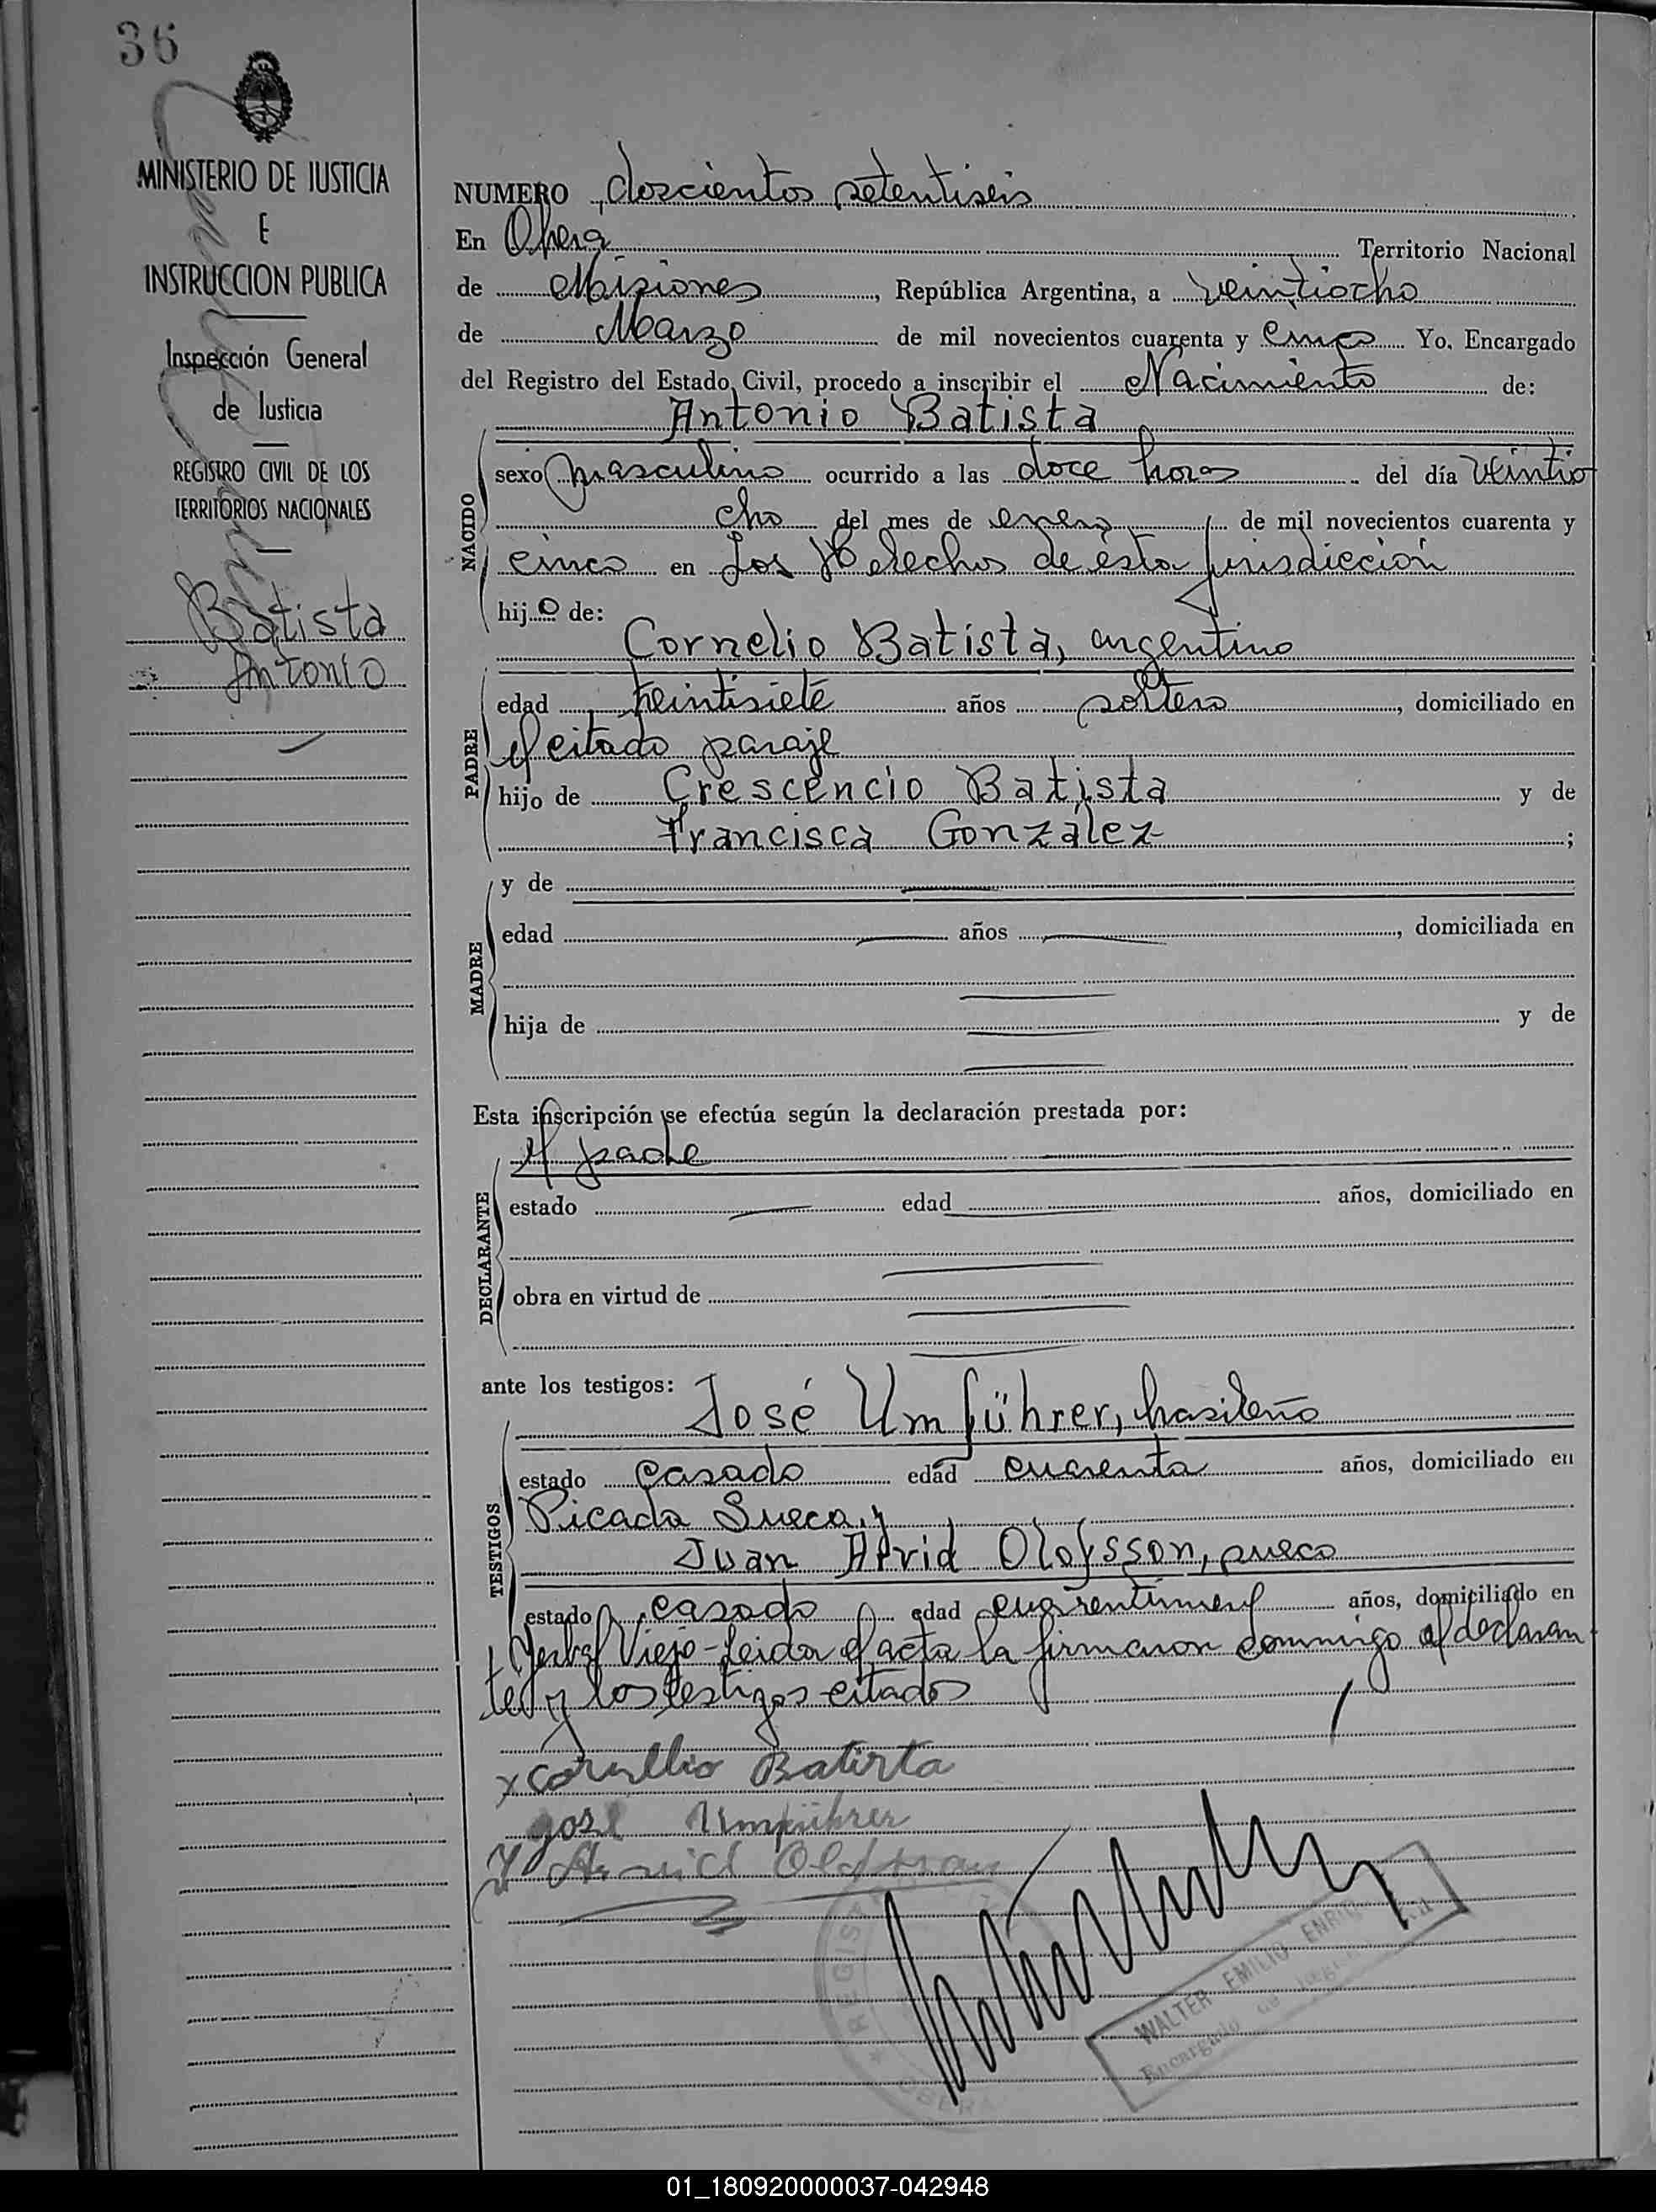 36
MINISTERIO DE JUSTICIA
E
INSTRUCCION PUBLICA
Inspección General
de Justicia
REGISTRO CIVIL DE LOS
TERRITORIOS NACIONALES
Batista
Antonio
NUMERO doscientos setentiseis
En Oberá Territorio Nacional
de Misiones, República Argentina, a veintiocho
de Marzo de mil novecientos cuarenta y cinco Yo, Encargado
del Registro del Estado Civil, procedo a inscribir el Nacimiento de:
Antonio Batista
NACIDO
sexo masculino ocurrido a las doce horas del día veintio
cho del mes de enero de mil novecientos cuarenta y
cinco en Los Helechos de ésta jurisdicción
hijo de:
Cornelio Batista, argentino
PADRE
edad veintisiete años soltero, domiciliado en
el citado paraje
hijo de Crescencio Batista y de
Francisca González;
MADRE
y de
edad años, domiciliada en
hija de y de
Esta inscripción se efectúa según la declaración prestada por:
el padre
DECLARANTE
estado edad años, domiciliado en
obra en virtud de
ante los testigos:
José Umführer, brasileño
TESTIGOS
estado casado edad cuarenta años, domiciliado en
Picada Sueca y
Juan Arvid Olofsson, sueco
estado casado edad años, domiciliado en
Yerbal Viejo - Leida el acta la firmaron conmigo el declaran
te y los testigos citados
x Batista
José Umführer
REGIST
OBERA
WALTER EMILIO ENRIQ
Encargado de Regis
01_180920000037-042948